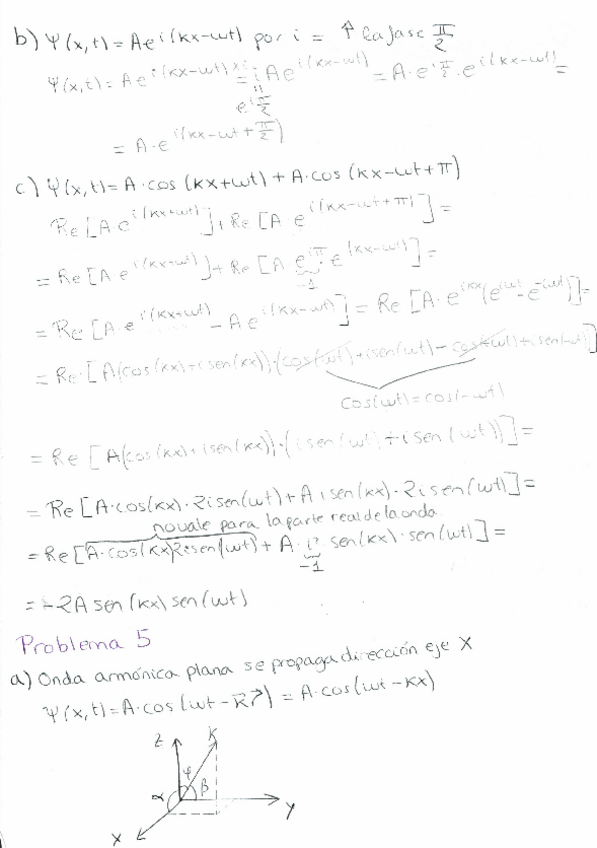 b) Ψ(x,t) = A e^{i(kx-ωt)} por i = ↑ la fase π/2
Ψ(x,t) = A e^{i(kx-ωt)} × i = i A e^{i(kx-ωt)} = A · e^{iπ/2} · e^{i(kx-ωt)} =
e^{iπ/2}
= A · e^{i(kx-ωt+π/2)}
c) Ψ(x,t) = A · cos(kx+ωt) + A · cos(kx-ωt+π)
Re[A e^{i(kx+ωt)}] + Re[A · e^{i(kx-ωt+π)}] =
= Re[A e^{i(kx+ωt)}] + Re[A e^{iπ} · e^{(kx-ωt)}] =
-1
= Re[A · e^{i(kx+ωt)} - A e^{i(kx-ωt)}] = Re[A · e^{ikx}(e^{iωt} - e^{-iωt})] =
= Re · [A(cos(kx) + i sen(kx)) · (cos(ωt) + i sen(ωt) - cos(-ωt) + i sen(ωt))]
cos(ωt) = cos(-ωt)
= Re [A(cos(kx) + i sen(kx)) · (i sen(ωt) + i sen(ωt))] =
= Re[A · cos(kx) · 2i sen(ωt) + A i sen(kx) · 2i sen(ωt)] =
no vale para la parte real de la onda
= Re[A · cos(kx) 2i sen(ωt) + A · i² sen(kx) · sen(ωt)] =
-1
= -2A sen(kx) sen(ωt)
Problema 5
a) Onda armónica plana se propaga dirección eje X
Ψ(x,t) = A · cos(ωt - k⃗r⃗) = A · cos(ωt - kx)
z k
φ
α β
y
x